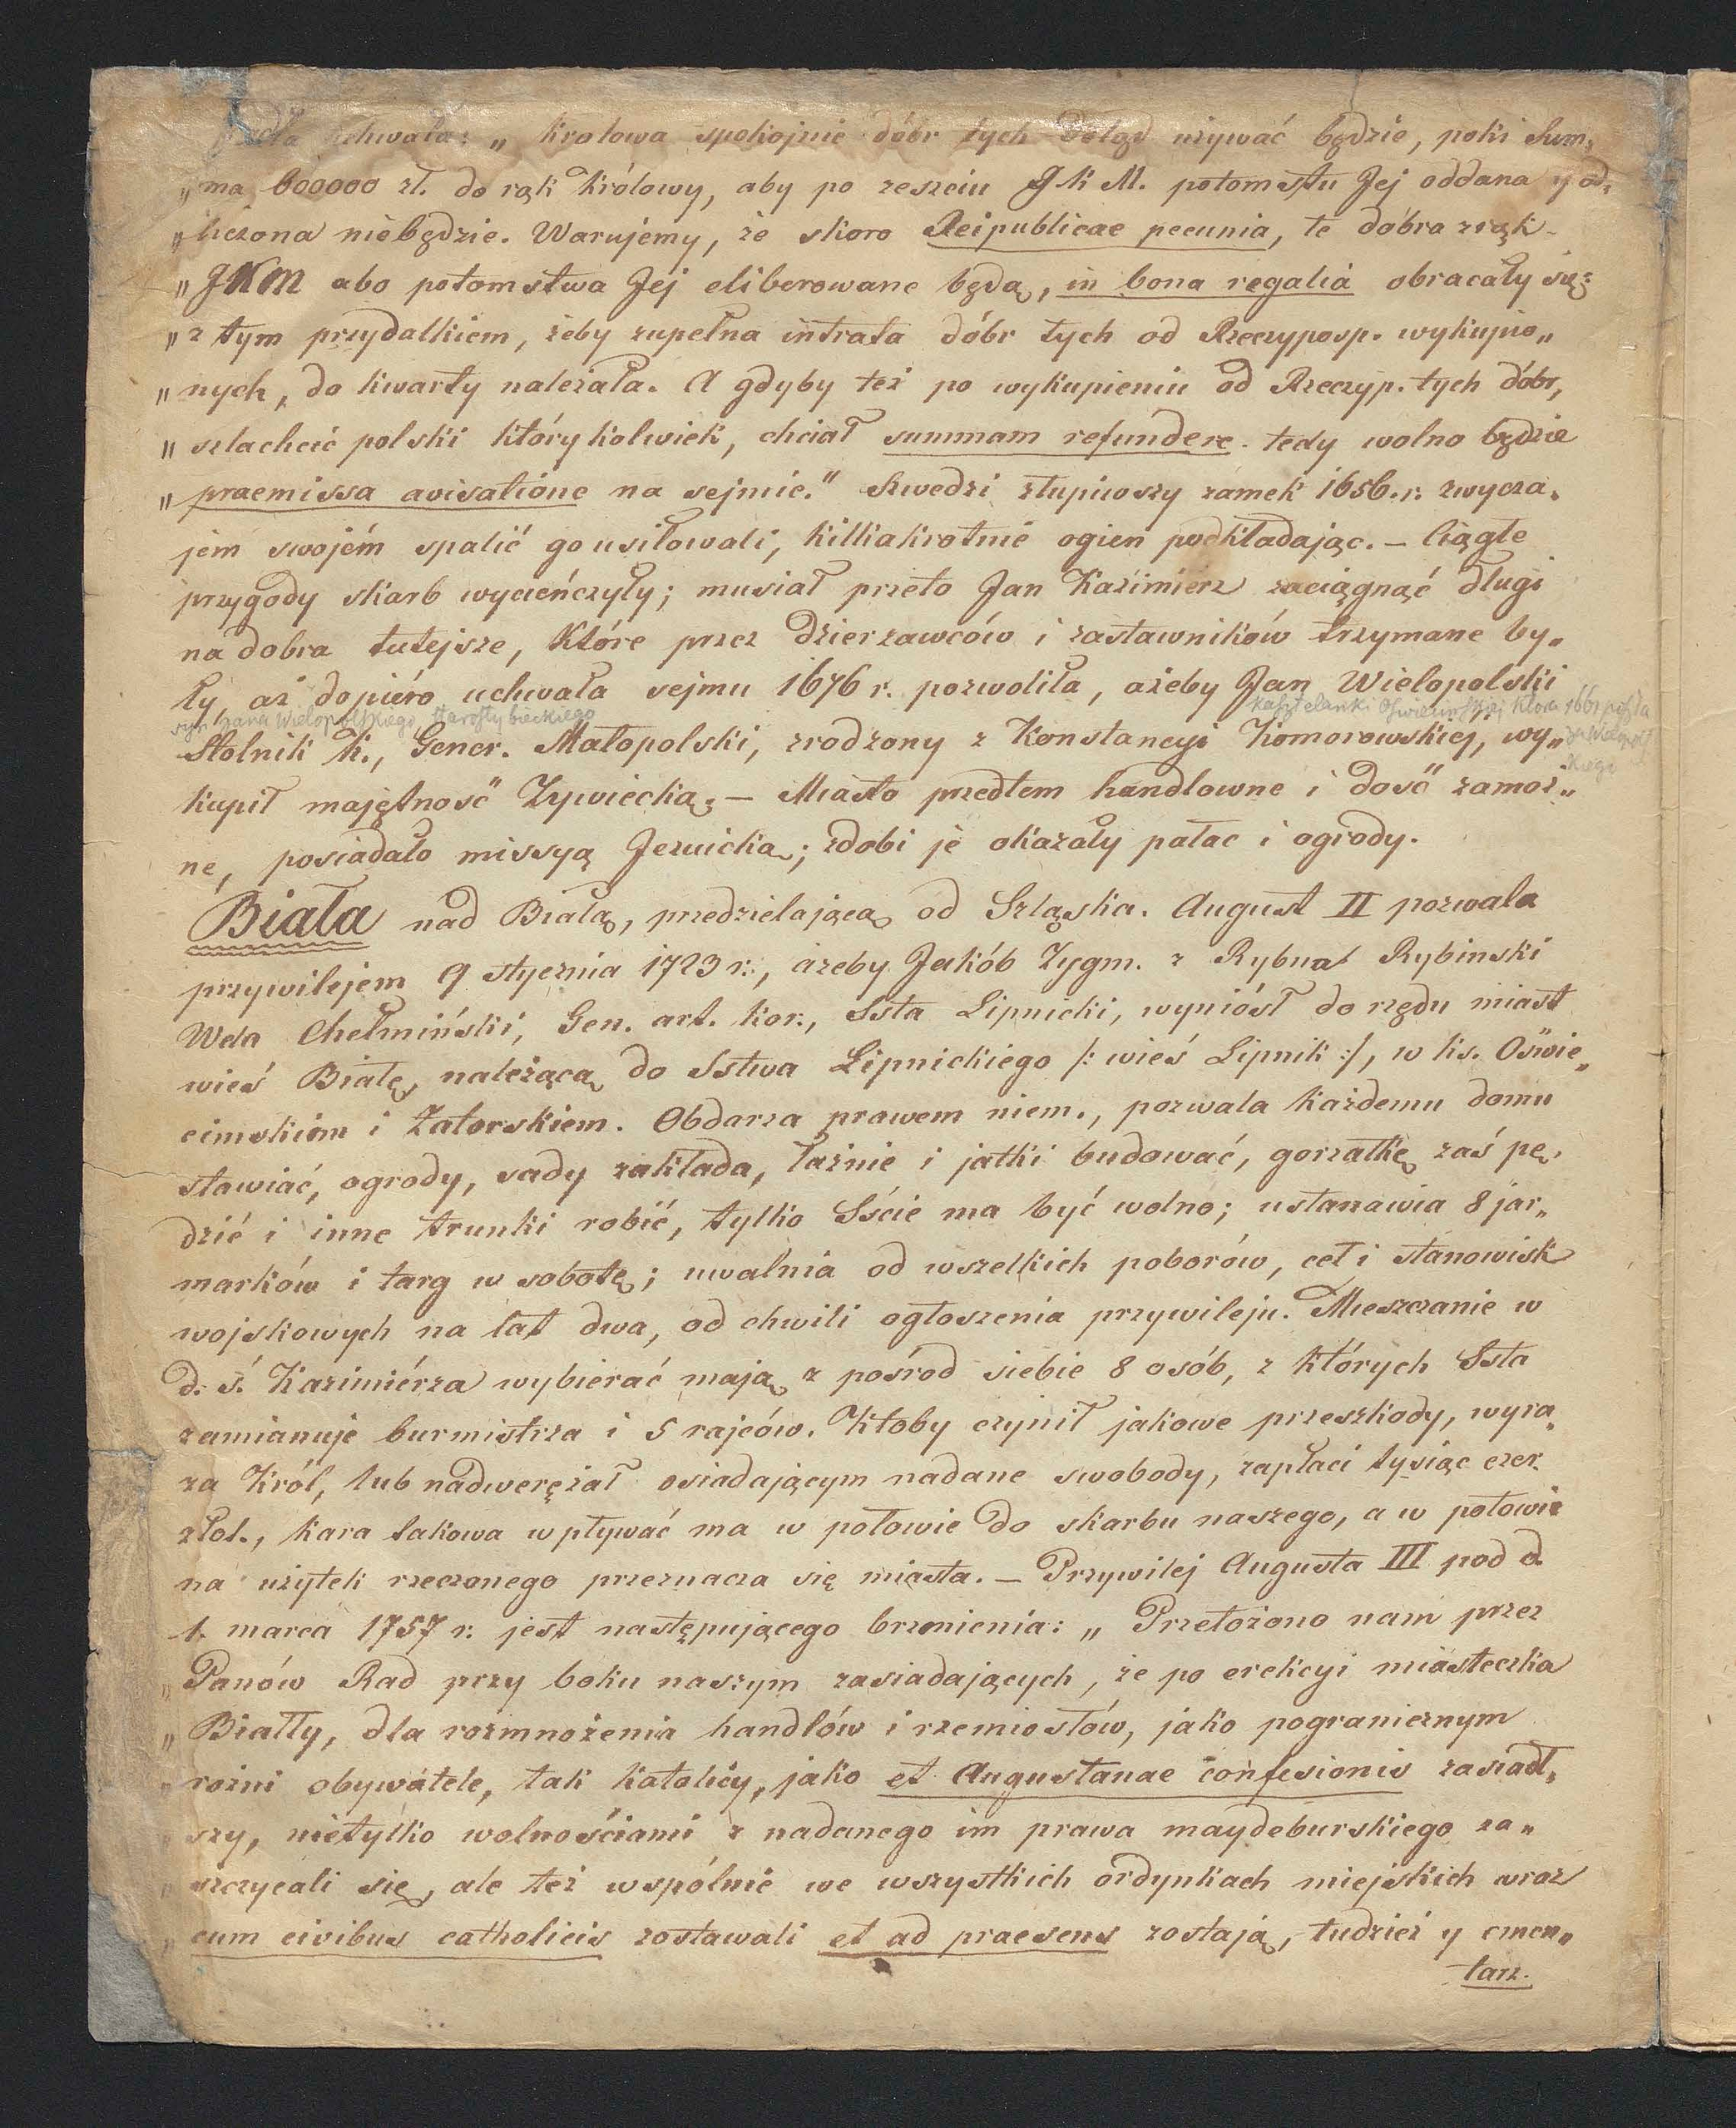 uchwała: „ krolowa spokojnie dóbr tych dotąd używać będzie, poki Sum„
„ma 600000 zł. do rąk królowy, aby po zeszciu JKM. potomstu Jej oddana y od„
„liczona niebędzie. Warujemy, że skoro Reipublicae pecunia, te dobra z rąk
„JKM abo potomstwa Jej eliberowane będą, in bona regalia obracały się:
„z tym przydatkiem, żeby zupełna intrata dóbr tych od Rzeczyposp. wykupio„
„nych, do kwarty należała. A gdyby też po wykupieniu od Rzeczyp. tych dóbr,
„szlachcic polski którykolwiek, chciał summam refundere. tedy wolno będzie
„praemissa avisatione na sejmie." Szwedzi złupiwszy zamek 1656. r. zwycza„
jem swojém spalić go usiłowali, killiakrotnie ogien podkładając. — Ciągłe
przygody skarb wycieńczyły; musiał przeto Jan Kazimierz zaciągnąć długi
na dobra tutejsze, które przez dzierzawców i zastawników trzymane by„
ły, aż dopiéro uchwała sejmu 1676 r. pozwoliła, ażeby Jan Wielopolski
syn Jana Wielopolskiego, starosty bieckiego
kasztelanki Oświecimskiej która 1661 poszła
za Wielopol
skiego
Stolnik K., Gener. Małopolski, zrodzony z Konstancyi Komorowskiéj, wy„
kupił majętność Zywiecką. — Miasto przedtem handlowne i dosć zamoż„
ne, posiadało missyą Jezuicką; zdobi je okazały pałac i ogrody.
Biała nad Białą, przedzielającą od Szląska. August II pozwala
przywilejem 9 stycznia 1723 r., ażeby Jakób Zygm. z Rybna Rybinski
Wda Chełmiński, Gen. art. kor., Ssta Lipnicki, wyniósł do rzędu miast
wieś Białę, należącą do Sstwa Lipnickiego /: wieś Lipnik :/, w ks. Oświe„
cimskiem i Zatorskiem. Obdarza prawem niem., pozwala każdemu domu
stawiać, ogrody, sady zakłada, łaźnie i jatki budować, gorzałkę zaś pę„
dzić i inne trunki robić, tylko Sście ma być wolno; ustanawia 8 jar„
marków i targ w sobotę; uwalnia od wszelkich poborów, ceł i stanowisk
wojskowych na lat dwa, od chwili ogłoszenia przywileju. Mieszczanie w
d. ś. Kazimiérza wybierać mają z pośrod siebie 8 osób, z których Ssta
zamianuje burmistrza i 5 rajców. Ktoby czynił jakowe przeszkody, wyra„
za Król, lub nadwerężał osiadającym nadane swobody, zapłaci tysiąc czer.
złot., kara takowa wpływać ma w połowie do skarbu naszego, a w połowie
na użytek rzeczonego przeznacza się miasta. — Przywilej Augusta III pod d.
1. marca 1757 r. jest następującego brzmienia: „ Przełożono nam przez
„Panów Rad przy boku naszym zasiadających, że po erekcyi miasteczka
„Białły, dla rozmnożenia handlów i rzemiosłów, jako pogranicznym
„rożni obywatele, tak katolicy, jako et Augustanae confesionis zasiadł„
„szy, nietylko wolnościami z nadanego im prawa maydeburskiego za„
„szczycali się, ale też wspólnie we wszystkich ordynkach miejskich wraz
„cum civibus catholicis zostawali et ad praesens zostają, tudzież y cmen„
tarz.